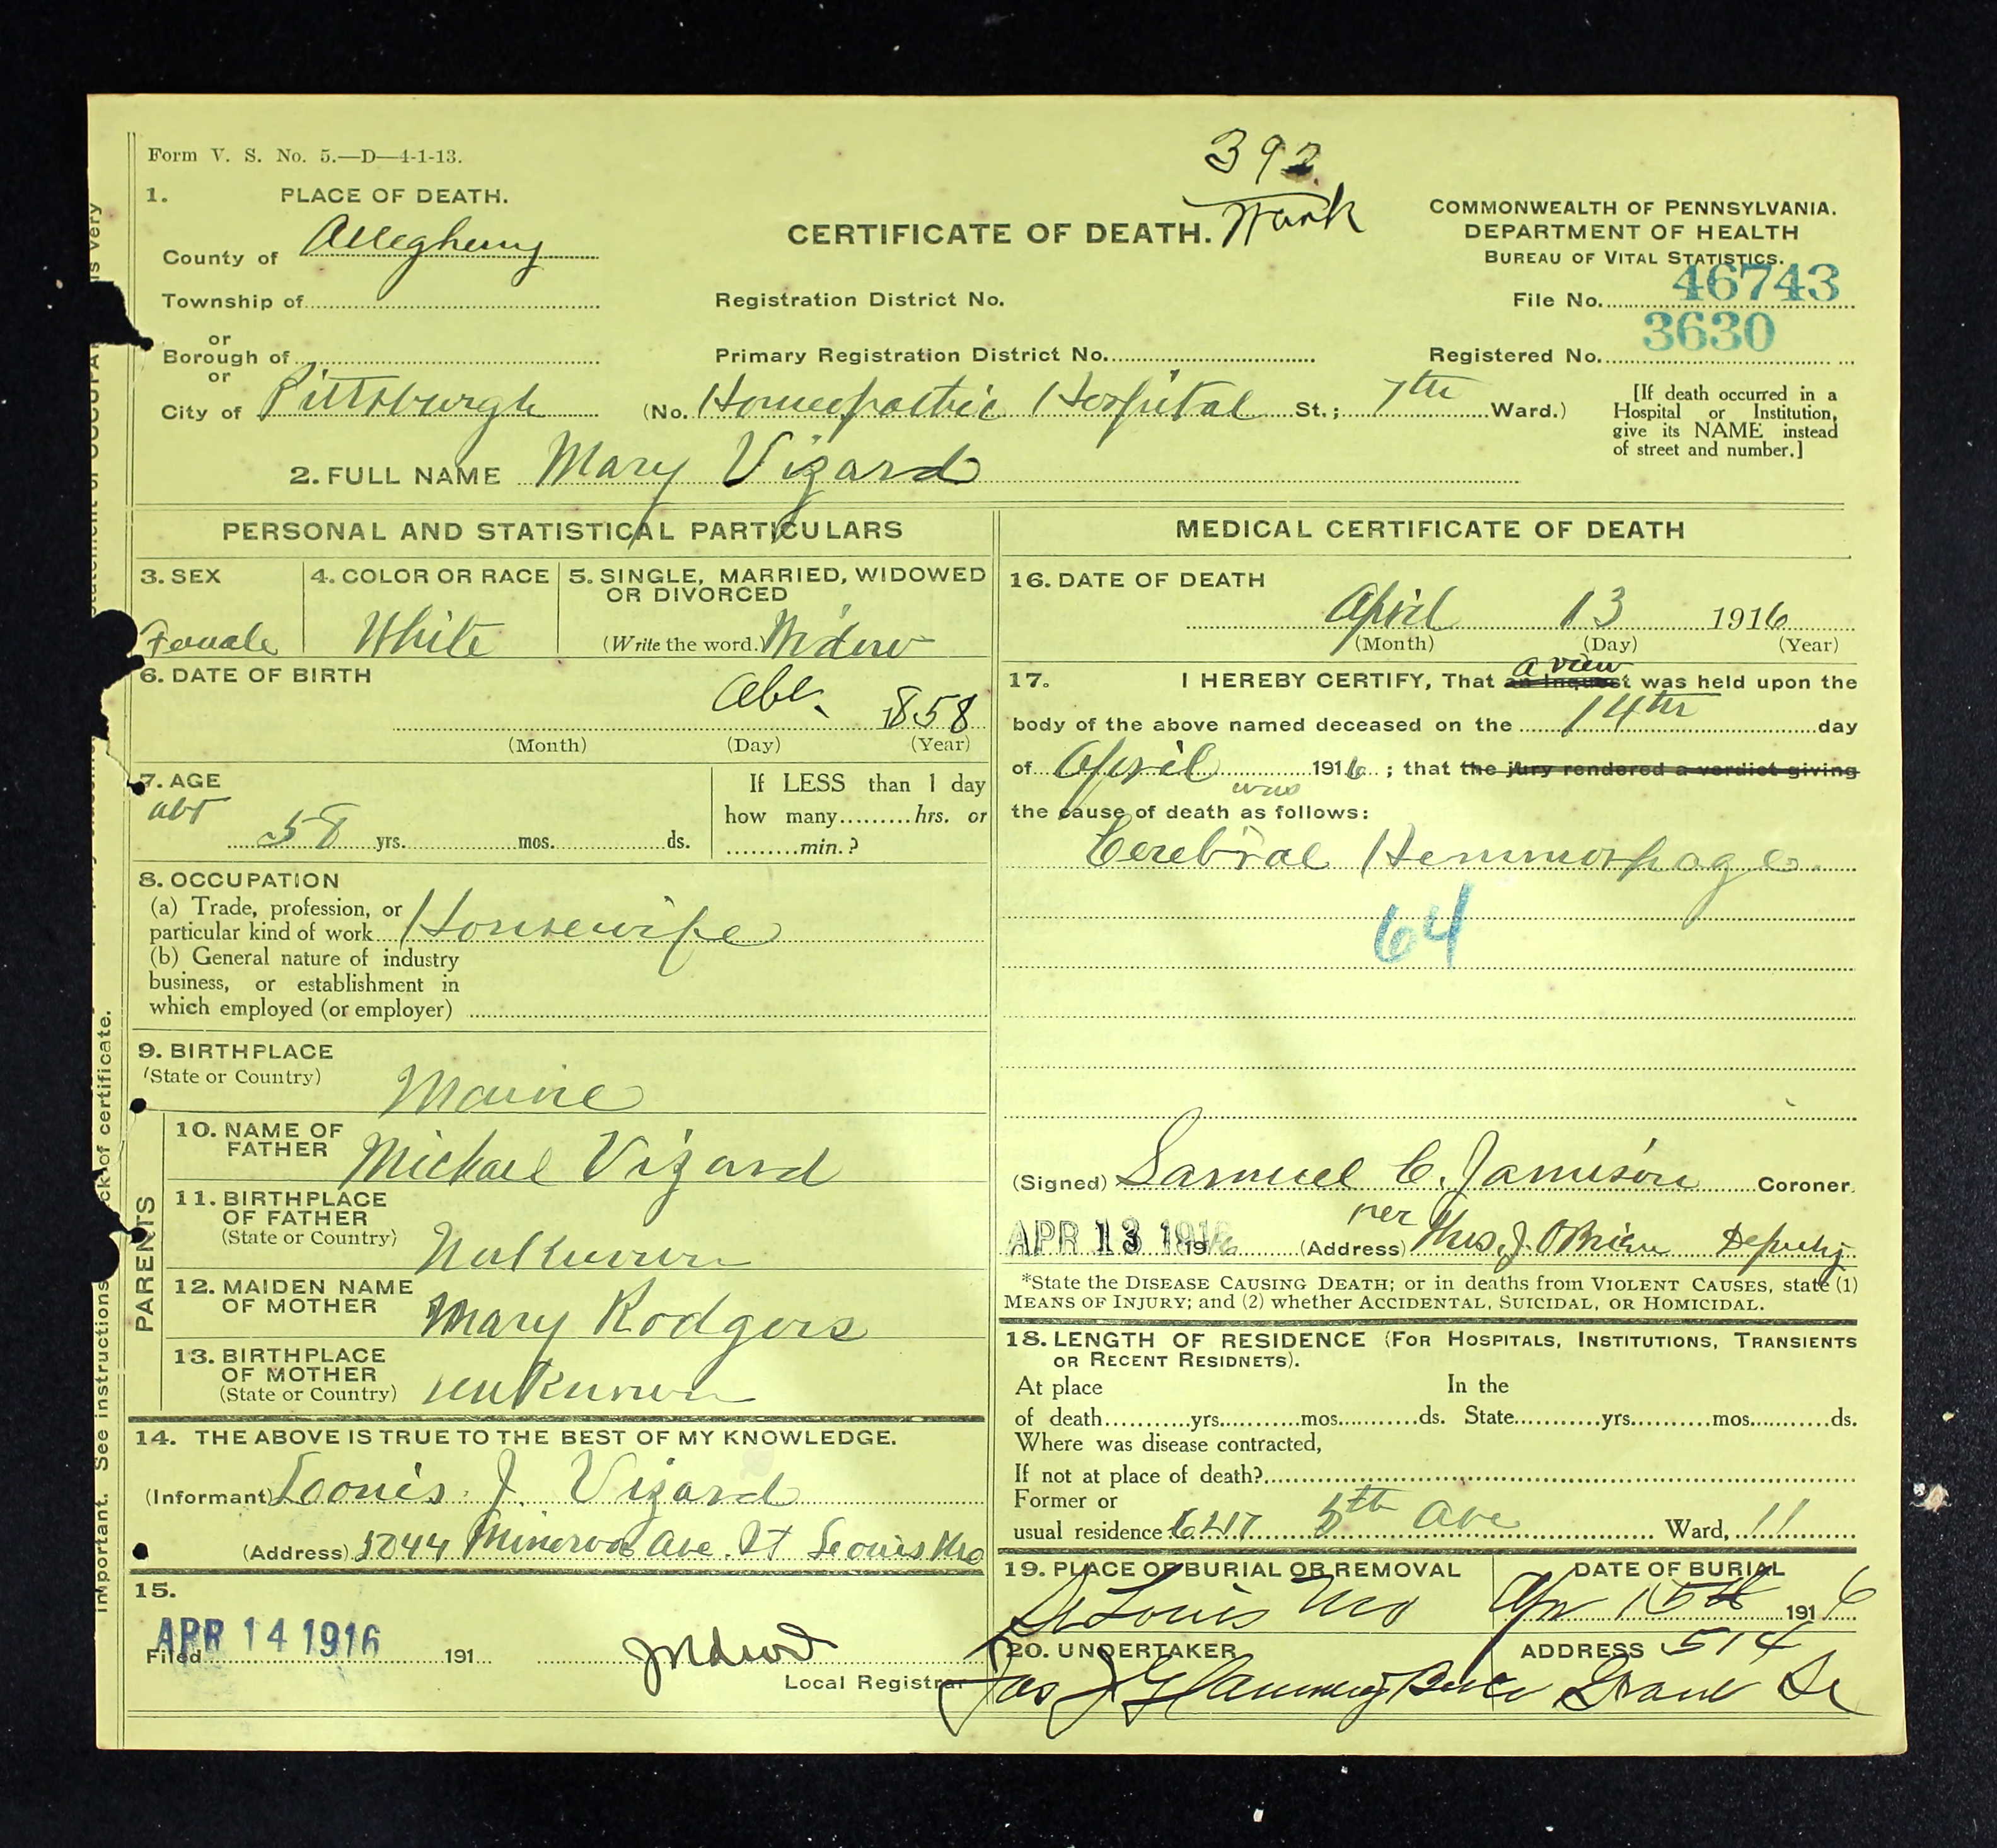 392
Form V. S. No. 5.—D—4-1-13.
1. PLACE OF DEATH.
County of Allegheny
CERTIFICATE OF DEATH.
COMMONWEALTH OF PENNSYLVANIA.
DEPARTMENT OF HEALTH
BUREAU OF VITAL STATISTICS.
Township of
Registration District No.
File No. 46743
or
Borough of
Primary Registration District No.
Registered No. 3630
or
City of Pittsburgh (No. Homeopathic Hospital St.; 7th Ward.)
[If death occurred in a
Hospital or Institution,
give its NAME instead
of street and number.]
2. FULL NAME Mary Vizard
PERSONAL AND STATISTICAL PARTICULARS
3. SEX
Female
4. COLOR OR RACE
White
5. SINGLE, MARRIED, WIDOWED
OR DIVORCED
(Write the word.) Widow
6. DATE OF BIRTH
Abt. 1858
(Month) (Day) (Year)
7. AGE
abt 58 yrs. mos. ds.
If LESS than 1 day
how many hrs. or
min.?
8. OCCUPATION
(a) Trade, profession, or
particular kind of work Housewife
(b) General nature of industry
business, or establishment in
which employed (or employer)
9. BIRTHPLACE
(State or Country)
Maine
PARENTS
10. NAME OF
FATHER Michael Vizard
11. BIRTHPLACE
OF FATHER
(State or Country) Unknown
12. MAIDEN NAME
OF MOTHER Mary Rodgers
13. BIRTHPLACE
OF MOTHER
(State or Country) unknown
14. THE ABOVE IS TRUE TO THE BEST OF MY KNOWLEDGE.
(Informant) Loouis J. Vizard
(Address) 5244 Minerva Ave. St Leouis Mo
15.
Filed APR 14 1916 191
Local Registrar
MEDICAL CERTIFICATE OF DEATH
16. DATE OF DEATH
April 13 1916
(Month) (Day) (Year)
a view
17. I HEREBY CERTIFY, That an Inquest was held upon the
body of the above named deceased on the 14th day
of April 1916; that the jury rendered a verdict giving
was
the cause of death as follows:
Cerebral Hemmorhage
64
(Signed) Samuel C. Jamison Coroner.
per
APR 13 1916 (Address) Thos. J. OBrien Deputy
*State the DISEASE CAUSING DEATH; or in deaths from VIOLENT CAUSES, state (1)
MEANS OF INJURY; and (2) whether ACCIDENTAL, SUICIDAL, OR HOMICIDAL.
18. LENGTH OF RESIDENCE (FOR HOSPITALS, INSTITUTIONS, TRANSIENTS
OR RECENT RESIDNETS).
At place In the
of death yrs. mos. ds. State yrs. mos. ds.
Where was disease contracted,
If not at place of death?
Former or
usual residence 5th Ave Ward, 11
19. PLACE OF BURIAL OR REMOVAL
St Louis Mo
DATE OF BURIAL
Apr 15th 1916
20. UNDERTAKER
ADDRESS 514
Jas J Grant St
important. See instructions
ck of certificate.